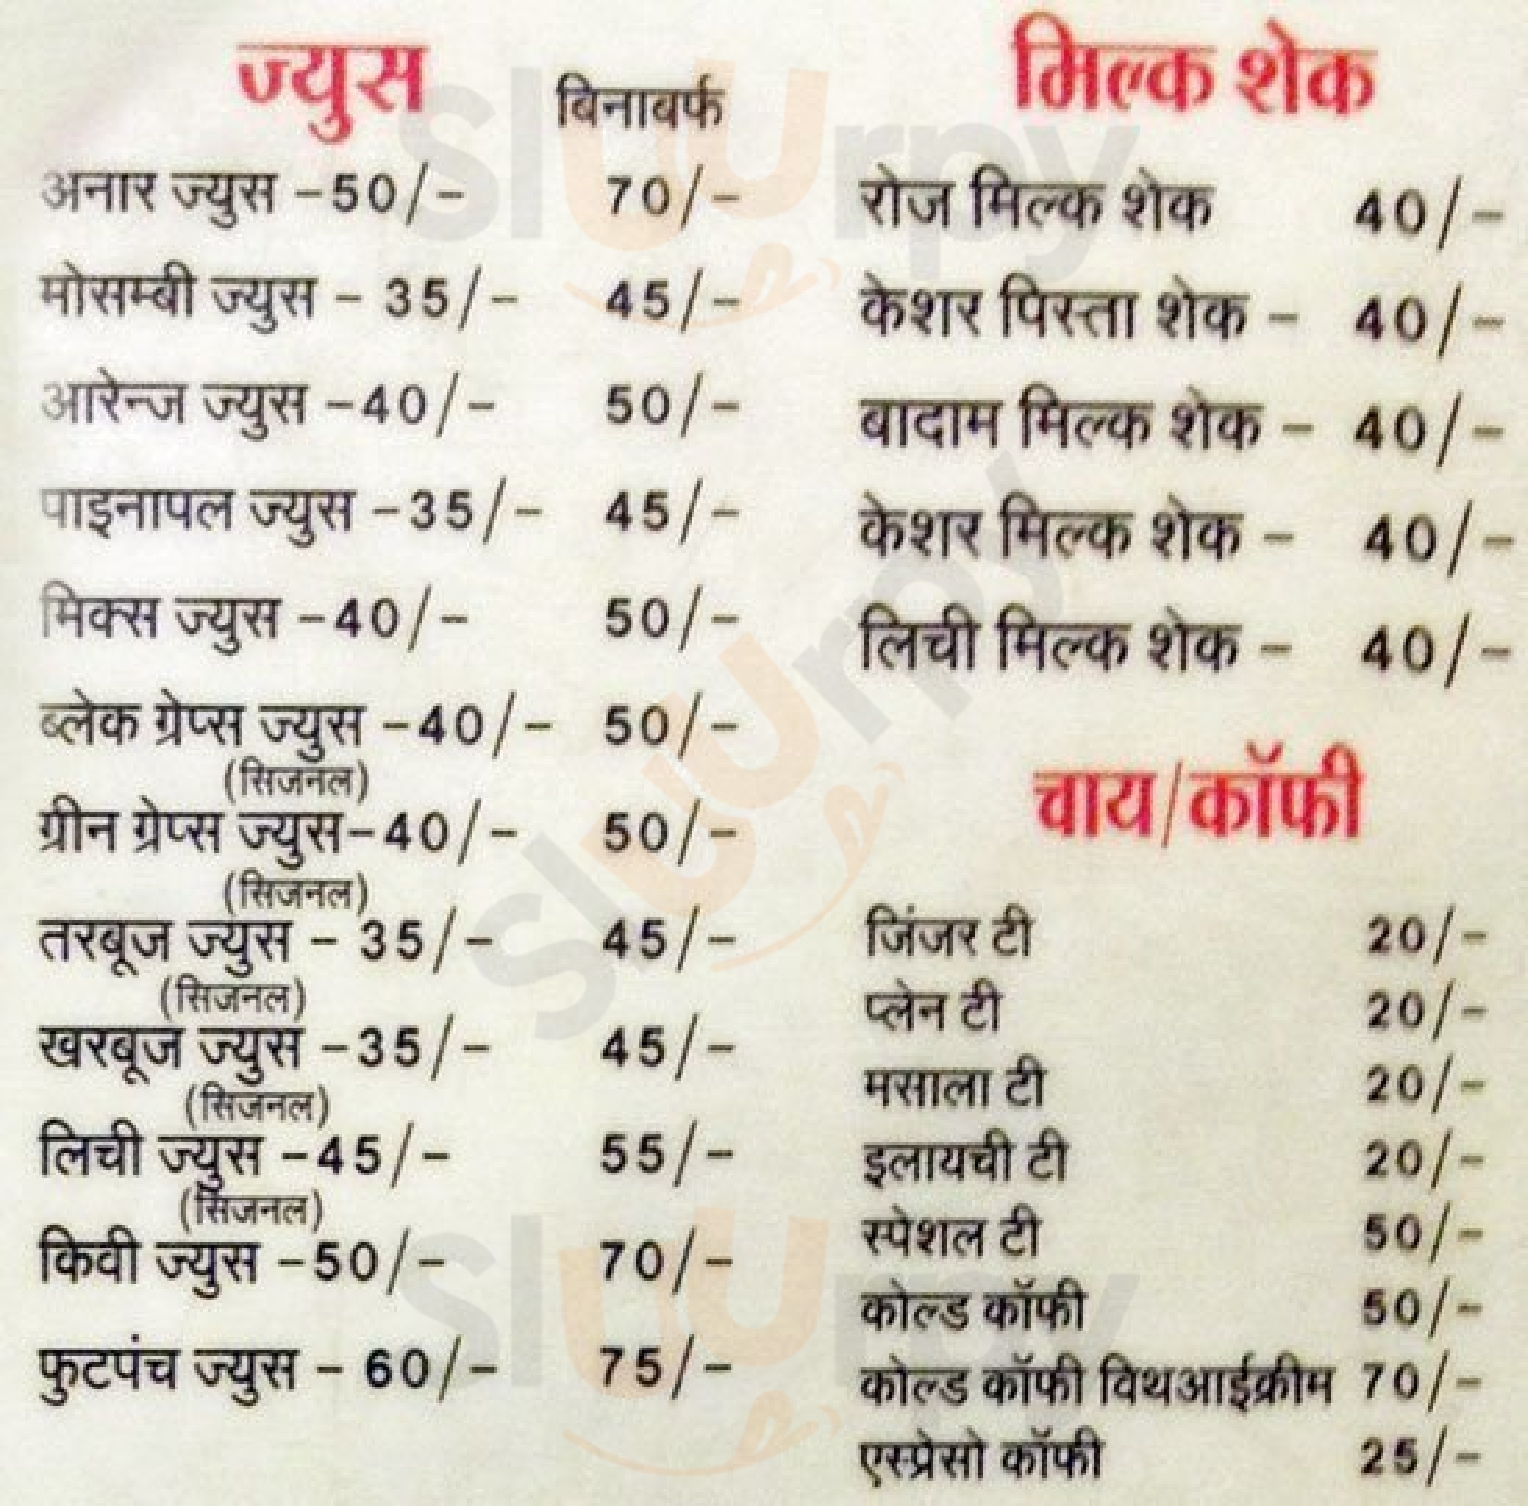 ज्युस बिनाबर्फ
अनार ज्युस -50/- 70/-
मोसम्बी ज्युस - 35/- 45/-
आरेन्ज ज्युस -40/- 50/-
पाइनापल ज्युस -35/- 45/-
मिक्स ज्युस -40/- 50/-
ब्लेक ग्रेप्स ज्युस -40/- 50/-
(सिजनल)
ग्रीन ग्रेप्स ज्युस-40/- 50/-
(सिजनल)
तरबूज ज्युस - 35/- 45/-
(सिजनल)
खरबूज ज्युस -35/- 45/-
(सिजनल)
लिची ज्युस -45/- 55/-
(सिजनल)
किवी ज्युस -50/- 70/-
फुटपंच ज्युस - 60/- 75/-
मिल्क शेक
रोज मिल्क शेक 40/-
केशर पिस्ता शेक - 40/-
बादाम मिल्क शेक - 40/-
केशर मिल्क शेक - 40/-
लिची मिल्क शेक - 40/-
चाय/कॉफी
जिंजर टी 20/-
प्लेन टी 20/-
मसाला टी 20/-
इलायची टी 20/-
स्पेशल टी 50/-
कोल्ड कॉफी 50/-
कोल्ड कॉफी विथआईक्रीम 70/-
एस्प्रेसो कॉफी 25/-
sluurpy
sluurpy
sluurpy